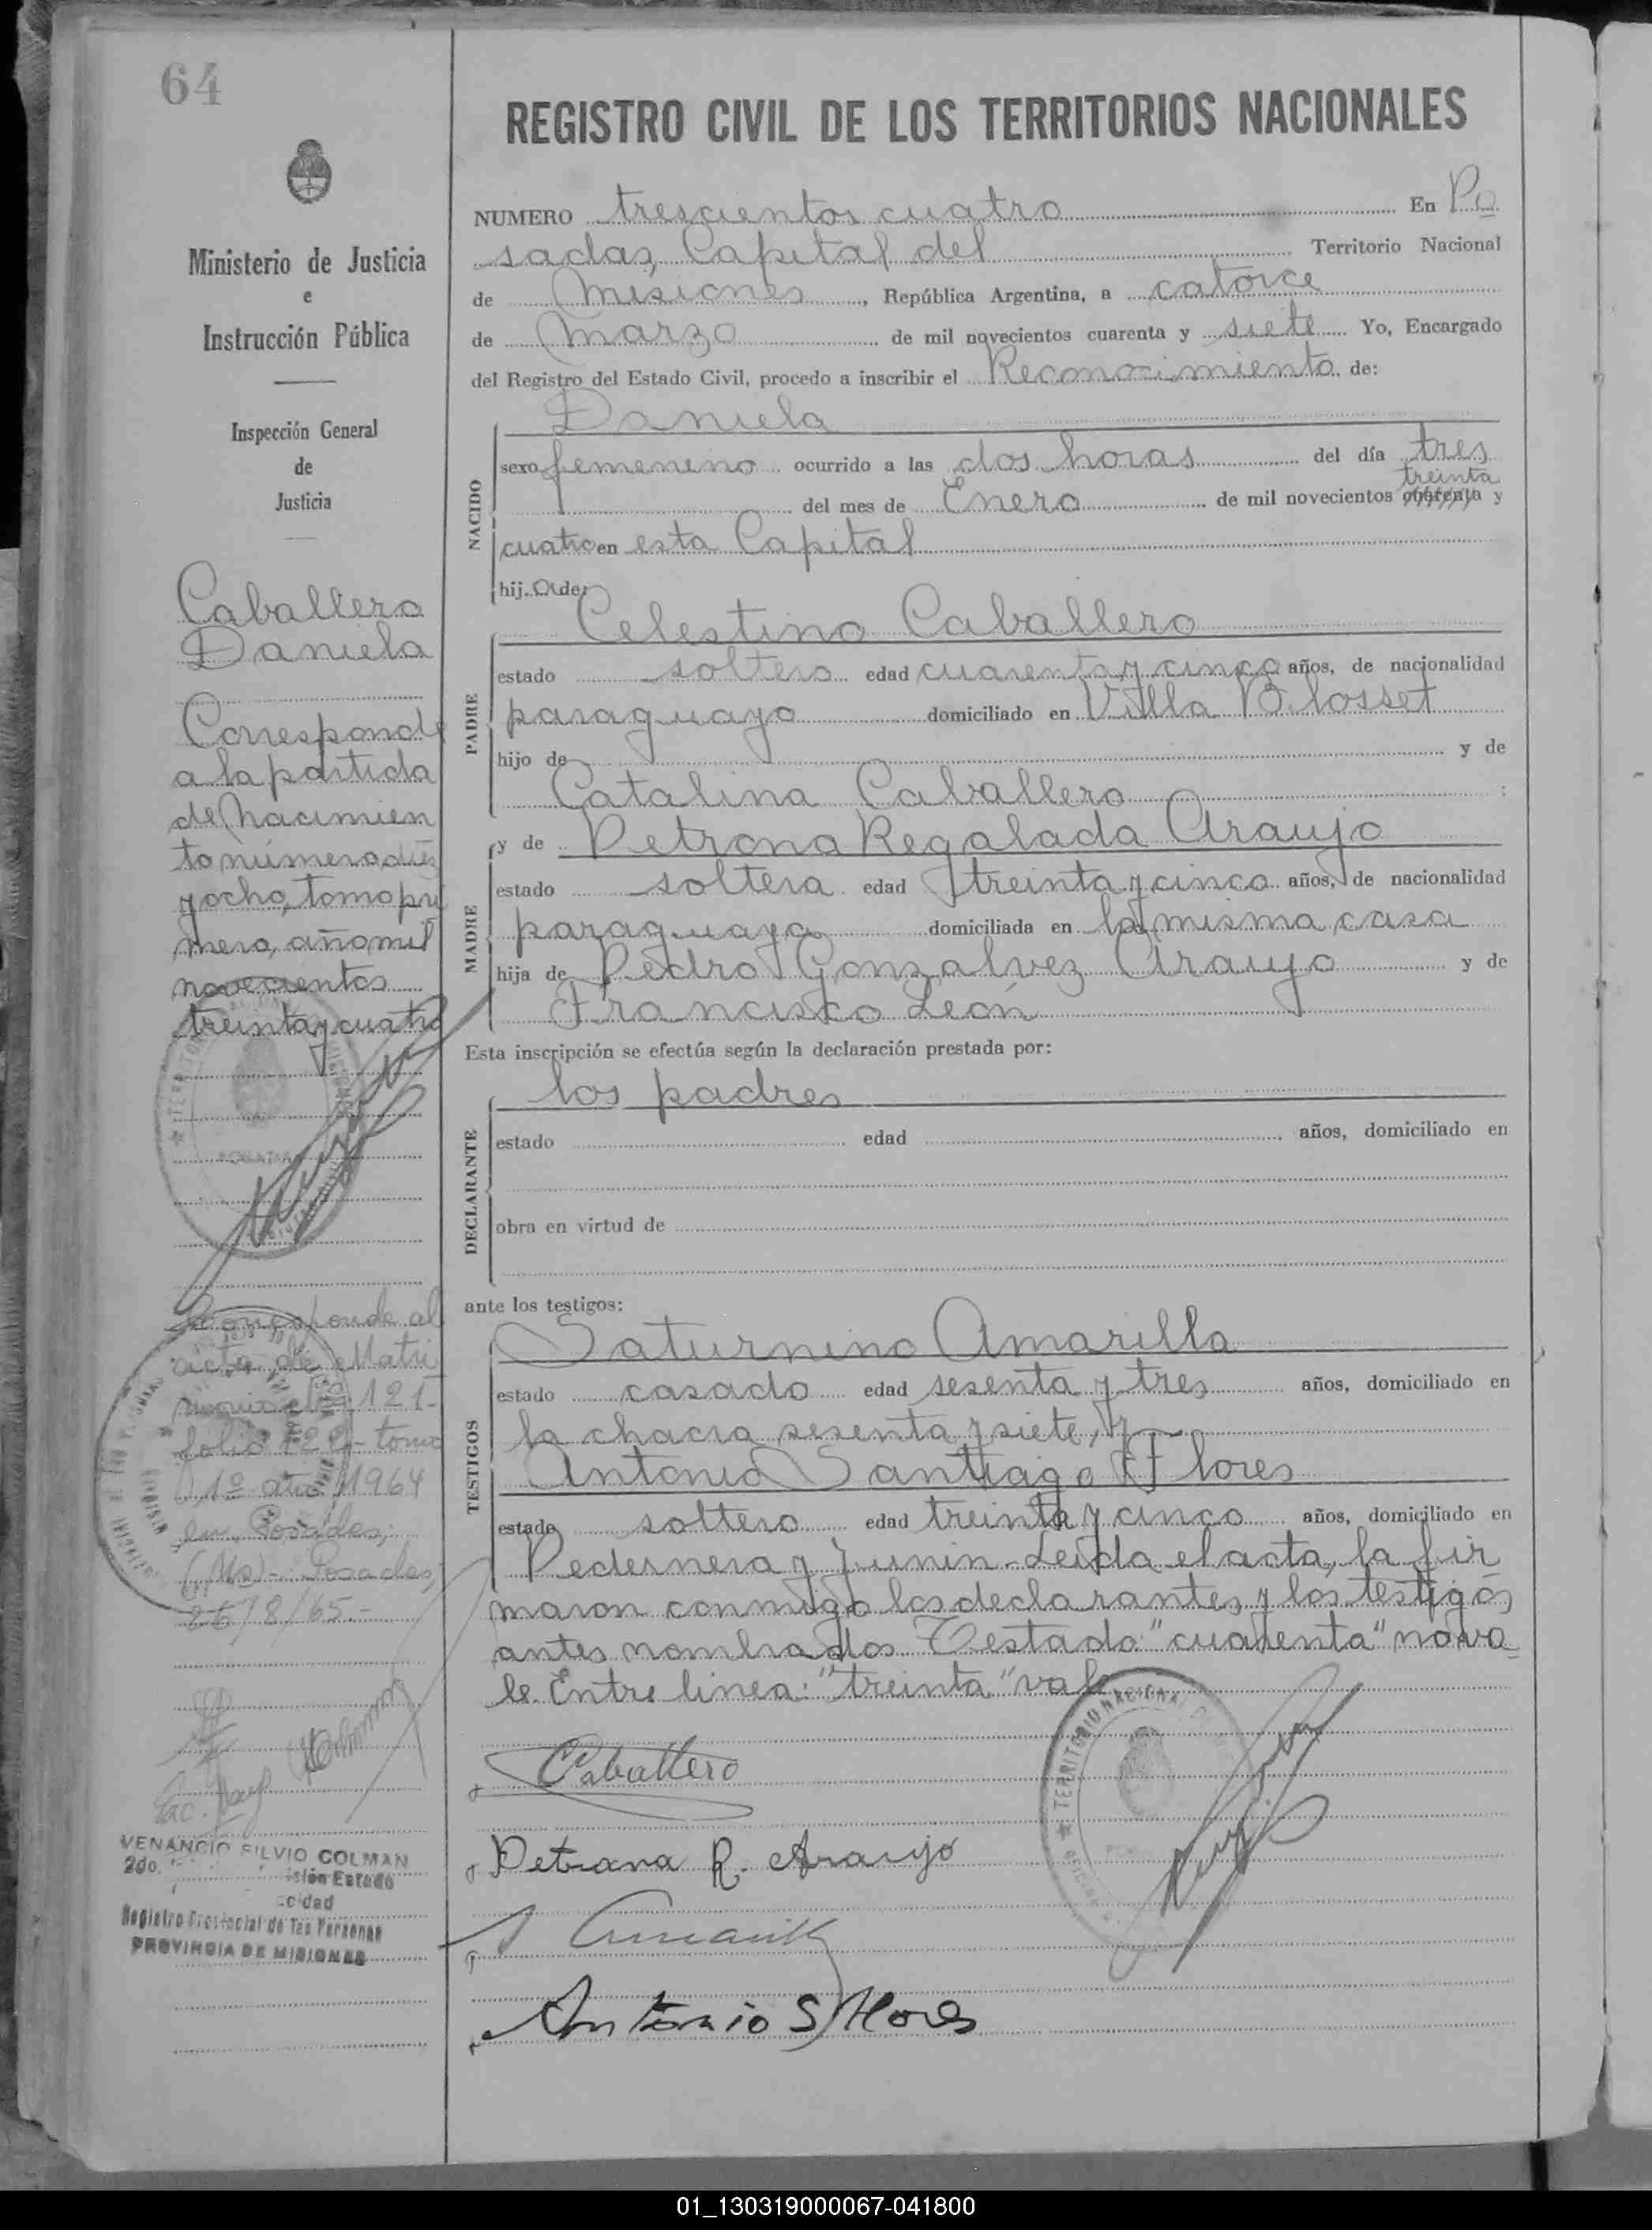 64
REGISTRO CIVIL DE LOS TERRITORIOS NACIONALES
Ministerio de Justicia
e
Instrucción Pública
Inspección General
de
Justicia
Caballero
Daniela
Corresponde
a la partida
de Nacimien
to número diez
y ocho, tomo pri
mero, año mil
novecientos
treinta y cuatro
Corresponde al
acta de Matri
monio Nº 121-
folio 122- tomo
1º año 1964
en Posadas,
(Ms)- Posadas,
26/8/65-
VENANCIO SILVIO COLMAN
2do.
Registro Provincial de las Personas
PROVINCIA DE MISIONES
NUMERO trescientos cuatro En Po
sadas, Capital del Territorio Nacional
de Misiones, República Argentina, a catorce
de Marzo de mil novecientos cuarenta y siete Yo, Encargado
del Registro del Estado Civil, procedo a inscribir el Reconocimiento de:
Daniela
NACIDO
sexo femenino ocurrido a las dos horas del día tres
treinta
del mes de Enero de mil novecientos cuarenta y
cuatro en esta Capital
hij a de:
Celestino Caballero
PADRE
estado soltero edad cuarenta y cinco años, de nacionalidad
paraguayo domiciliado en Villa Blosset
hijo de y de
Catalina Caballero ;
y de Petrona Regalada Araujo
MADRE
estado soltera edad treinta y cinco años, de nacionalidad
paraguaya domiciliada en la misma casa
hija de Pedro Gonzalvez Araujo y de
Francisco León
Esta inscripción se efectúa según la declaración prestada por:
los padres
DECLARANTE
estado edad años, domiciliado en
obra en virtud de
ante los testigos:
Saturnino Amarilla
TESTIGOS
estado casado edad sesenta y tres años, domiciliado en
la chacra sesenta y siete, y
Antonio Santiago Flores
estado soltero edad treinta y cinco años, domiciliado en
Pedernera y Junin-Leida el acta, la fir
maron conmigo los declarantes y los testigos
antes nombrados Testado "cuarenta" no va
le. Entre linea: "treinta" vale
Caballero
Petrona R. Araujo
S Amarilla
Antonio S Flores
TERRITORIO NACIONAL
01_130319000067-041800